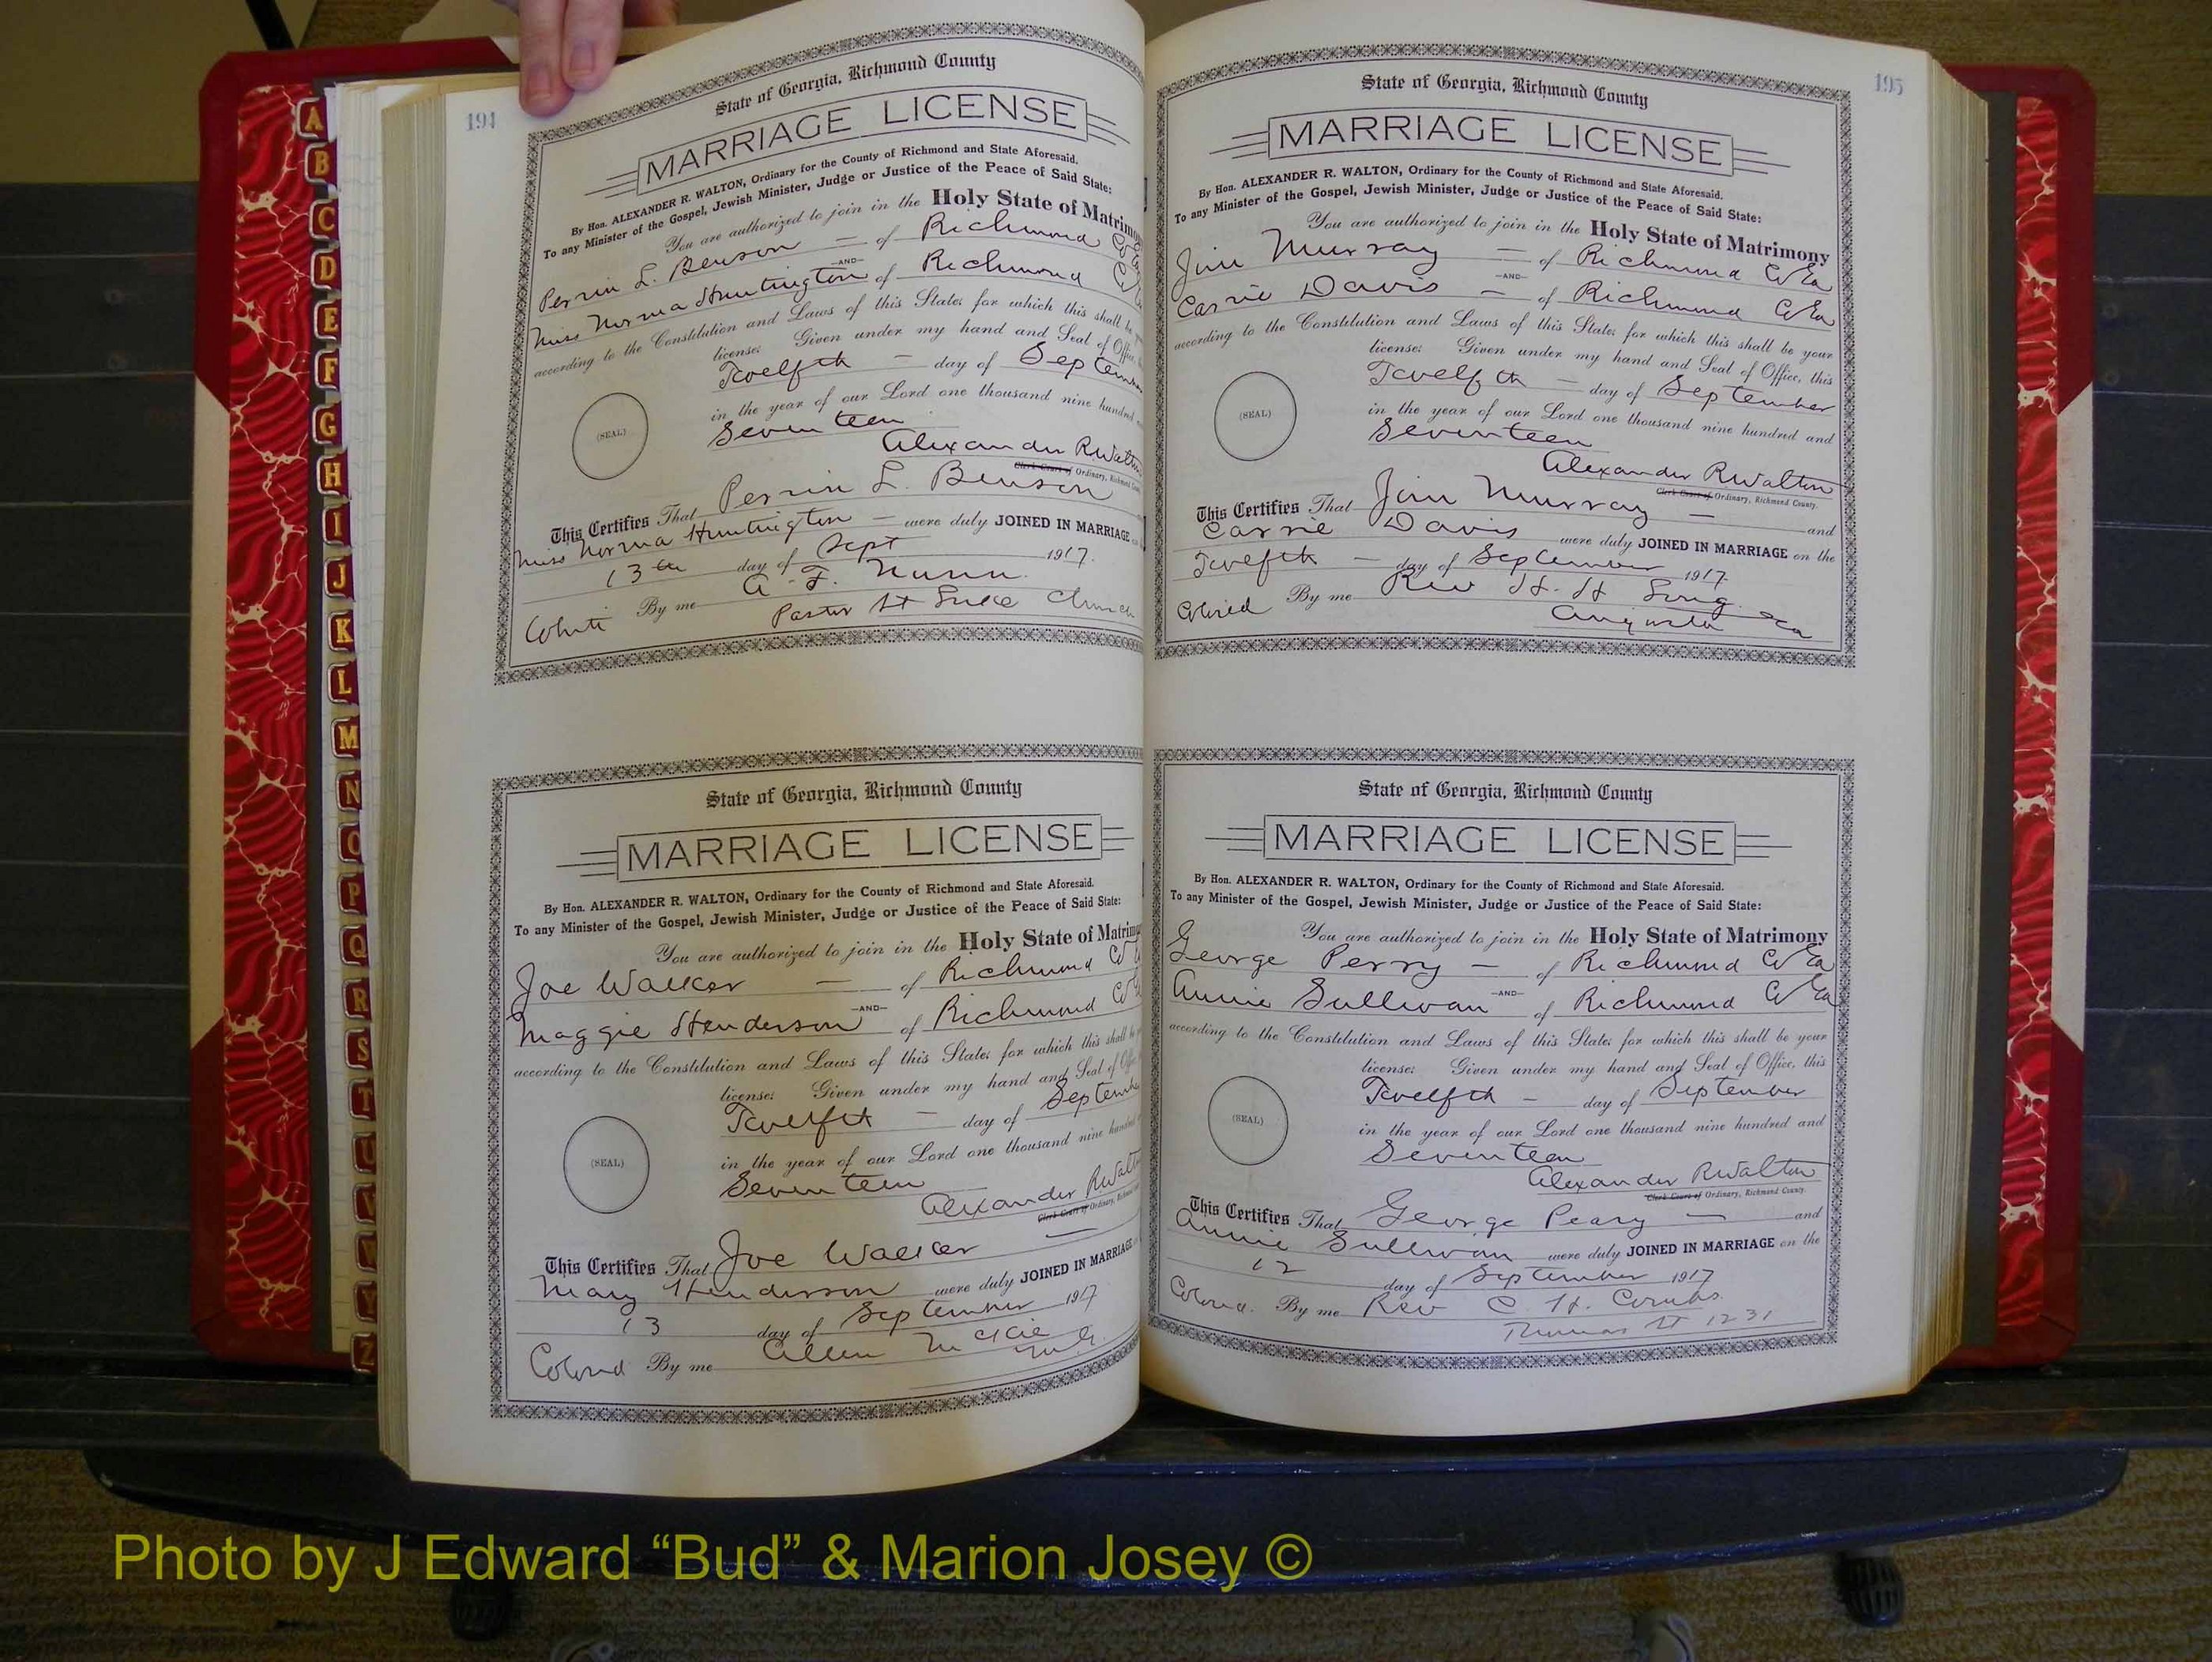 A
B
C
D
E
F
G
H
I
J
K
L
M
N
O
P
Q
R
S
T
U
V
W
Y
Z
194
State of Georgia, Richmond County
MARRIAGE LICENSE
By Hon. ALEXANDER R. WALTON, Ordinary for the County of Richmond and State Aforesaid.
To any Minister of the Gospel, Jewish Minister, Judge or Justice of the Peace of Said State:
You are authorized to join in the Holy State of Matrimo
Perrin L. Benson — of Richmond Co
—AND—
Miss Norma Huntington of Richmond Co
according to the Constitution and Laws of this State; for which this shall be
license: Given under my hand and Seal of Office,
Twelfth — day of September
in the year of our Lord one thousand nine hundred
Seventeen
(SEAL)
Alexander R Walton
Clerk Court of Ordinary, Richmond County
This Certifies That Perrin L. Benson
Miss Norma Huntington — were duly JOINED IN MARRIAGE
13th day of Sept 1917.
White By me A. F. Nunn.
Pastor St Luke Church
State of Georgia, Richmond County
MARRIAGE LICENSE
By Hon. ALEXANDER R. WALTON, Ordinary for the County of Richmond and State Aforesaid.
To any Minister of the Gospel, Jewish Minister, Judge or Justice of the Peace of Said State:
You are authorized to join in the Holy State of Matrimo
Joe Walker — of Richmond Co
—AND—
Maggie Henderson of Richmond Co
according to the Constitution and Laws of this State; for which this shall be
license: Given under my hand and Seal of
Twelfth — day of September
in the year of our Lord one thousand nine hundred
Seventeen
(SEAL)
Alexander R Walton
Clerk Court of Ordinary, Richmond
This Certifies That Joe Walker —
Mary Henderson were duly JOINED IN MARRIAGE
13 day of September 1917
Colored By me Allen McKie
195
State of Georgia, Richmond County
MARRIAGE LICENSE
By Hon. ALEXANDER R. WALTON, Ordinary for the County of Richmond and State Aforesaid.
To any Minister of the Gospel, Jewish Minister, Judge or Justice of the Peace of Said State:
You are authorized to join in the Holy State of Matrimony
Jim Murray — of Richmond Co Ga
—AND—
Carrie Davis — of Richmond Co Ga
according to the Constitution and Laws of this State; for which this shall be your
license: Given under my hand and Seal of Office, this
Twelfth — day of September
in the year of our Lord one thousand nine hundred and
Seventeen
(SEAL)
Alexander R Walton
Clerk Court of Ordinary, Richmond County.
This Certifies That Jim Murray — and
Carrie Davis were duly JOINED IN MARRIAGE on the
Twelfth — day of September 1917
Colored By me Rev H. H
Augusta Ga
State of Georgia, Richmond County
MARRIAGE LICENSE
By Hon. ALEXANDER R. WALTON, Ordinary for the County of Richmond and State Aforesaid.
To any Minister of the Gospel, Jewish Minister, Judge or Justice of the Peace of Said State:
You are authorized to join in the Holy State of Matrimony
George Perry — of Richmond Co Ga
—AND—
Annie Sullivan of Richmond Co Ga
according to the Constitution and Laws of this State; for which this shall be your
license: Given under my hand and Seal of Office, this
Twelfth — day of September
in the year of our Lord one thousand nine hundred and
Seventeen
(SEAL)
Alexander R Walton
Clerk Court of Ordinary, Richmond County.
This Certifies That George Peary — and
Annie Sullivan were duly JOINED IN MARRIAGE on the
12 day of September 1917
Colored. By me Rev C. H. Combs.
Thomas St 1231
Photo by J Edward “Bud” & Marion Josey ©